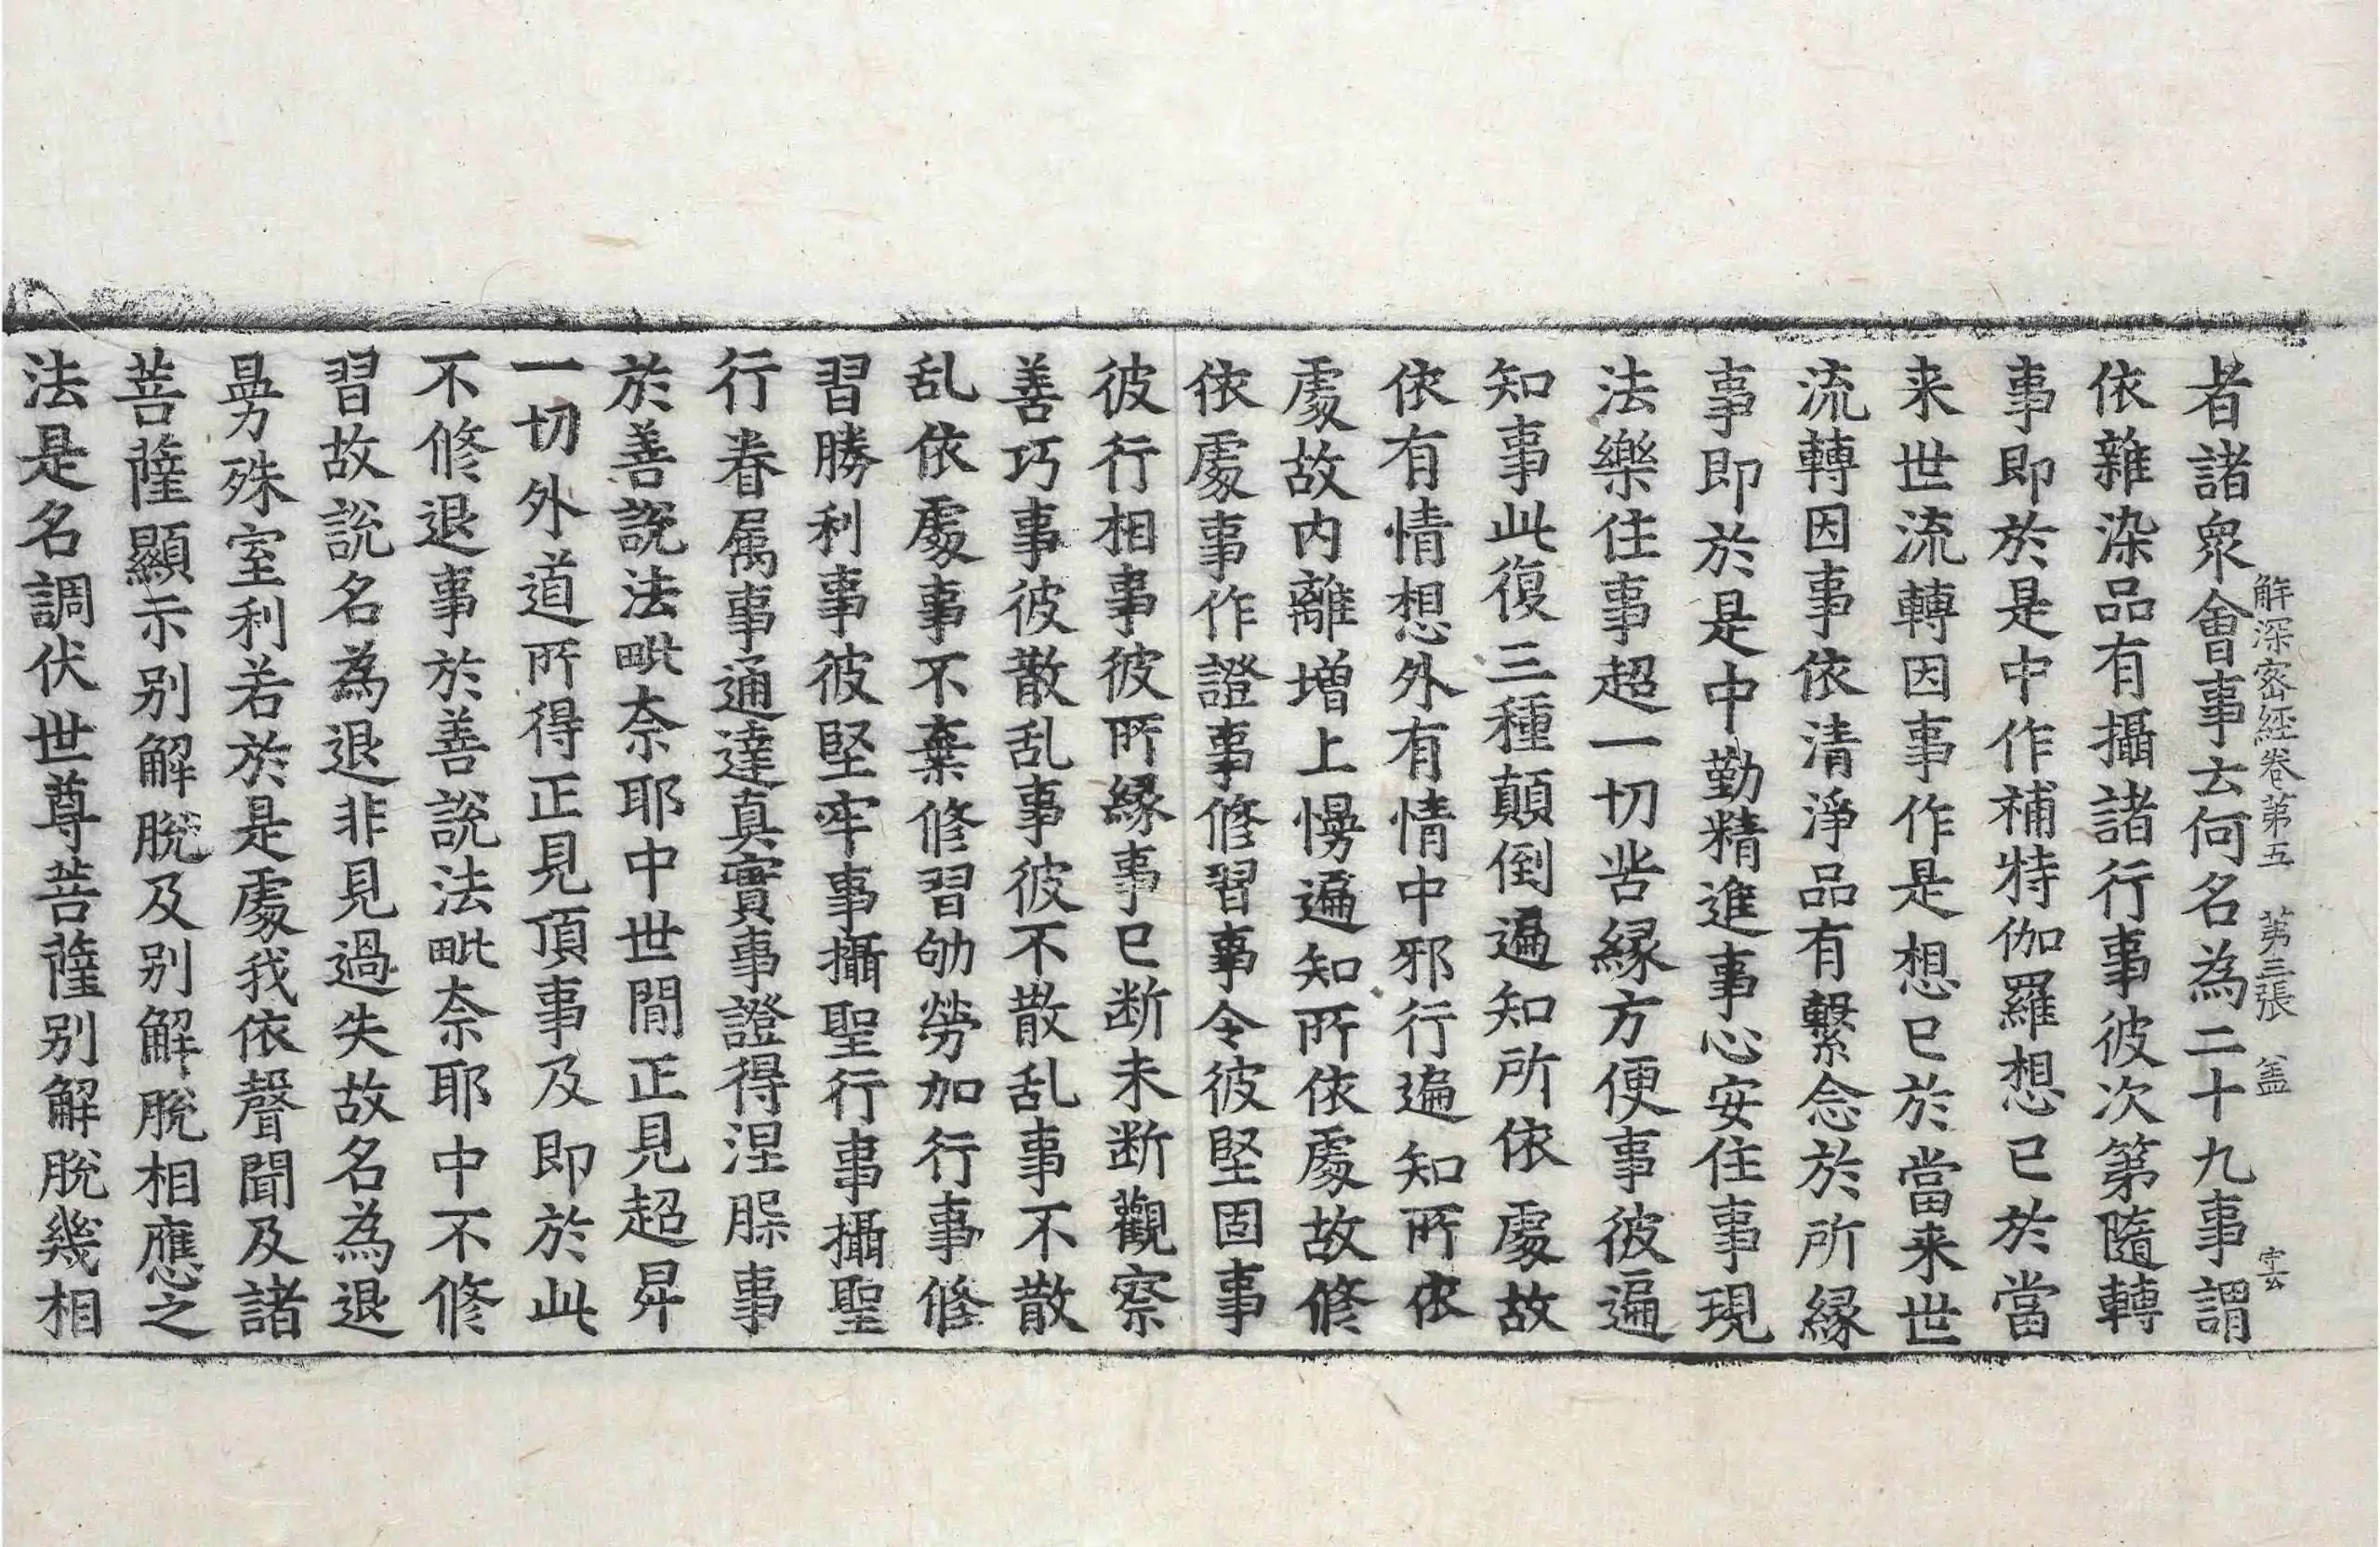 解深密經卷第五　第三張　盖　雲
者諸衆會事云何名為二十九事謂
依雜染品有攝諸行事彼次第隨轉
事即於是中作補特伽羅想已於當
来世流轉因事作是想已於當来世
流轉因事依清淨品有繫念於所縁
事即於是中勤精進事心安住事現
法樂住事超一切苦縁方便事彼遍
知事此復三種顛倒遍知所依處故
依有情想外有情中邪行遍知所依
處故内離增上慢遍知所依處故修
依處事作證事修習事令彼堅固事
彼行相事彼所縁事已断未断觀察
善巧事彼散乱事彼不散乱事不散
乱依處事不棄修習劬勞加行事修
習勝利事彼堅牢事攝聖行事攝聖
行眷属事通達真實事證得涅槃事
於善說法毗奈耶中世間正見超昇
一切外道所得正見頂事及即於此
不修退事於善說法毗奈耶中不修
習故說名為退非見過失故名為退
曼殊室利若於是處我依聲聞及諸
菩薩顯示别解脫及别解脫相應之
法是名調伏世尊菩薩别解脫幾相